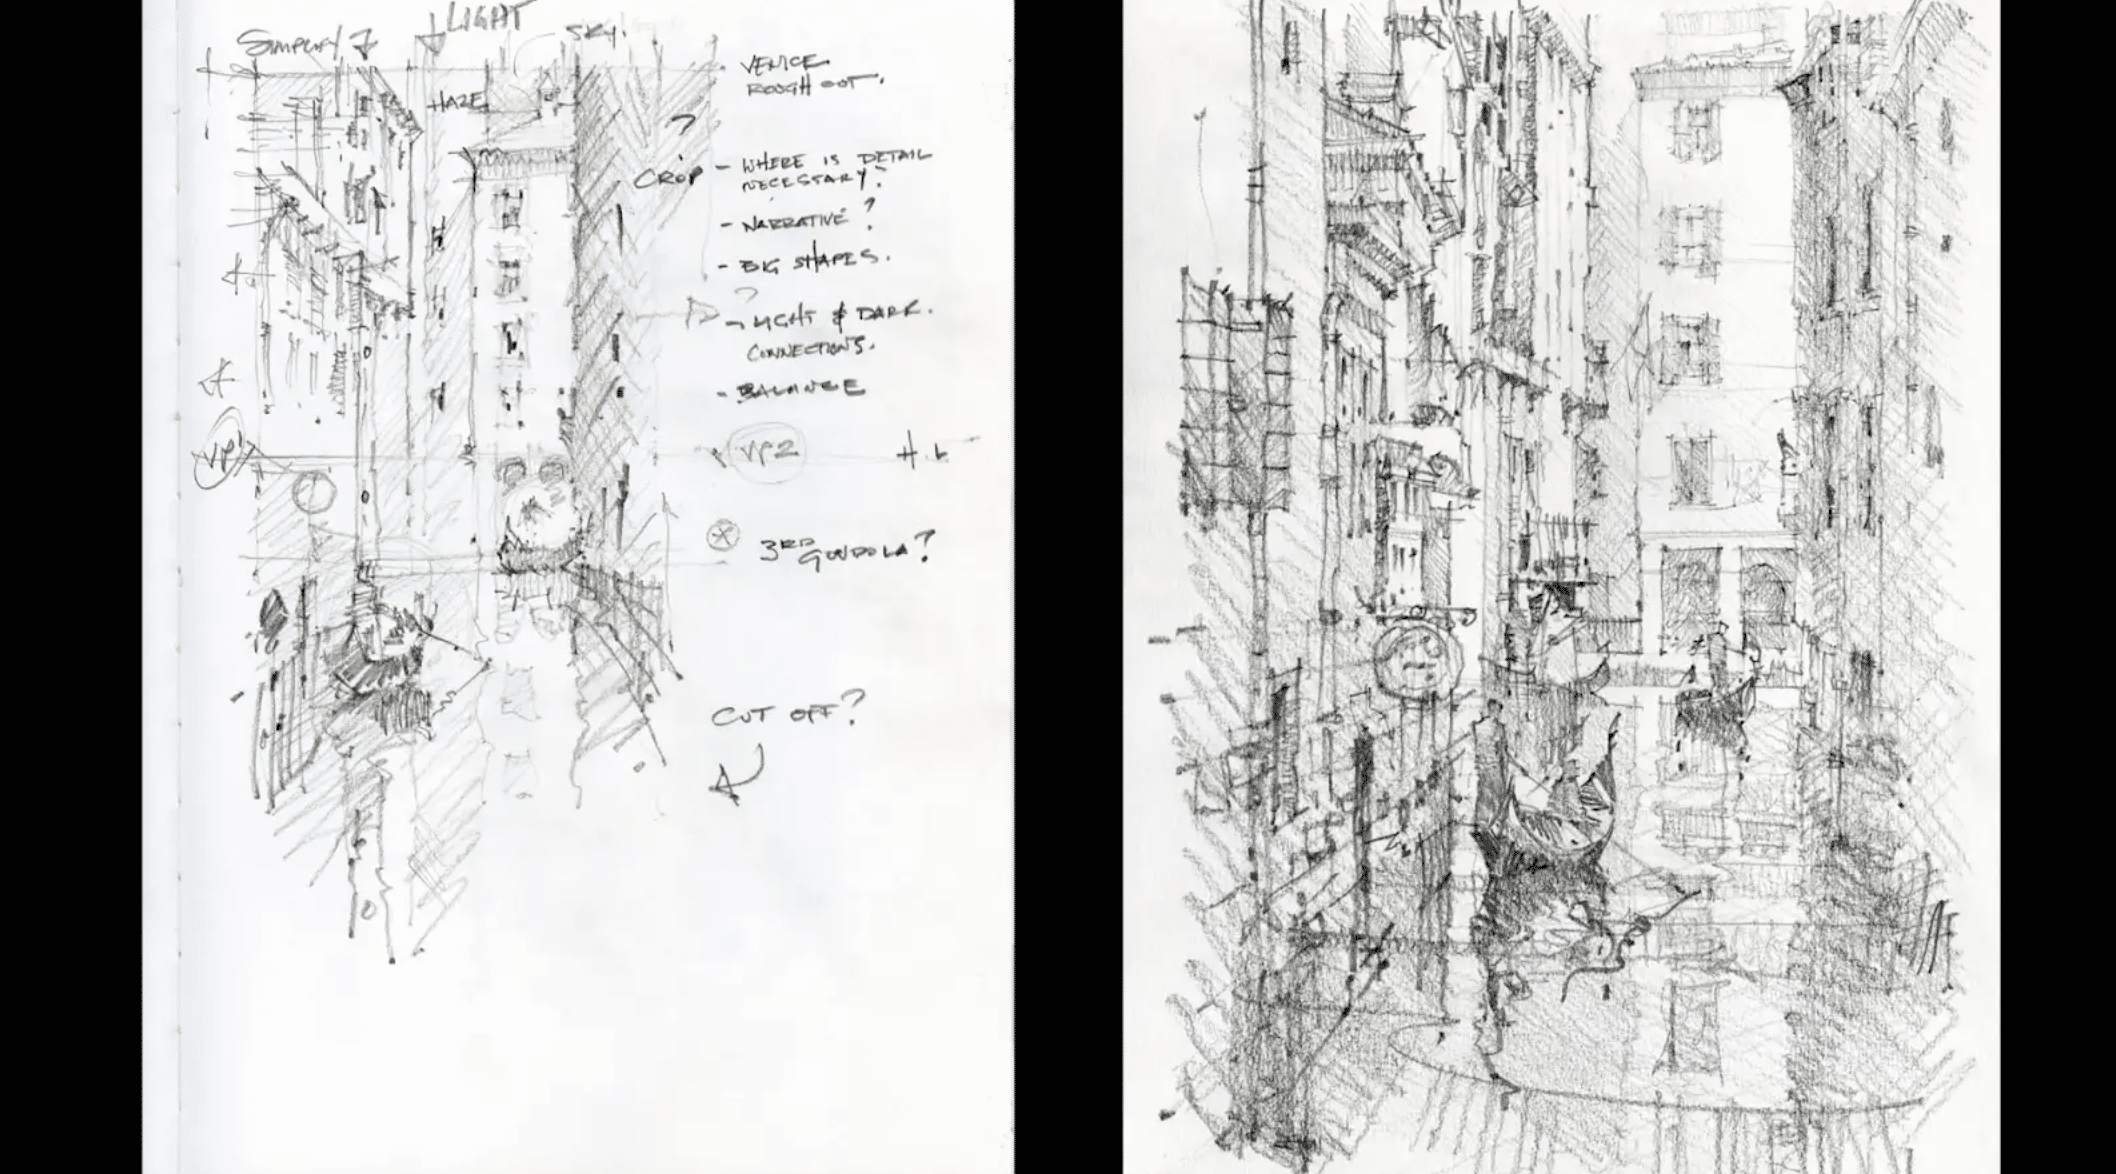 SIMPLIFY
LIGHT
SKY.
HAZE
VENICE
ROUGH OUT.
?
CROP
- WHERE IS DETAIL
NECESSARY?
- NARRATIVE?
- BIG SHAPES.
?
- LIGHT & DARK.
CONNECTIONS.
- BALANCE
VP1
VP2
H.L
3RD
GONDOLA?
CUT OFF?